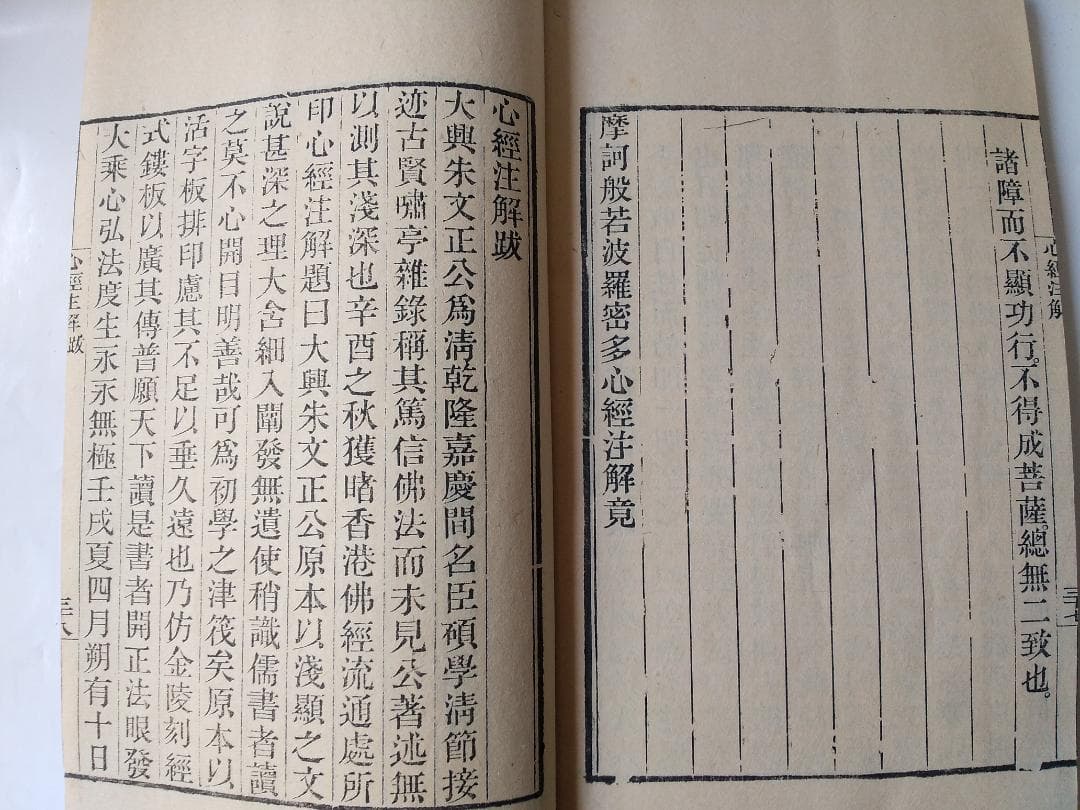 心經注解
三十七
諸障而不顯功行。不得成菩薩。總無二致也。
摩訶般若波羅密多心經注解竟
心經注解跋
大興朱文正公爲清乾隆嘉慶間名臣碩學清節接
迹古賢嘯亭雜錄稱其篤信佛法而未見公著述無
以測其淺深也辛酉之秋獲睹香港佛經流通處所
印心經注解題曰大興朱文正公原本以淺顯之文
說甚深之理大含細入闡發無遺使稍識儒書者讀
之莫不心開目明善哉可爲初學之津筏矣原本以
活字板排印慮其不足以垂久遠也乃仿金陵刻經
式鏤板以廣其傳普願天下讀是書者開正法眼發
大乘心弘法度生永永無極壬戌夏四月朔有十日
心經注解跋
三十八